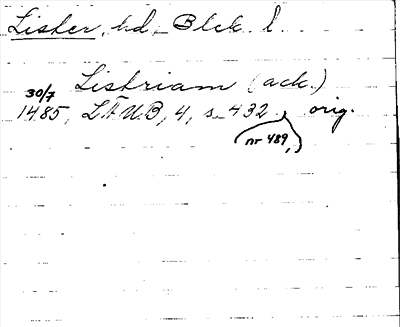 Lister, hd, Blek. l.
Listriam (ack.)
30/7
1485, LÄUB, 4, s. 432, orig.
(nr 489,)